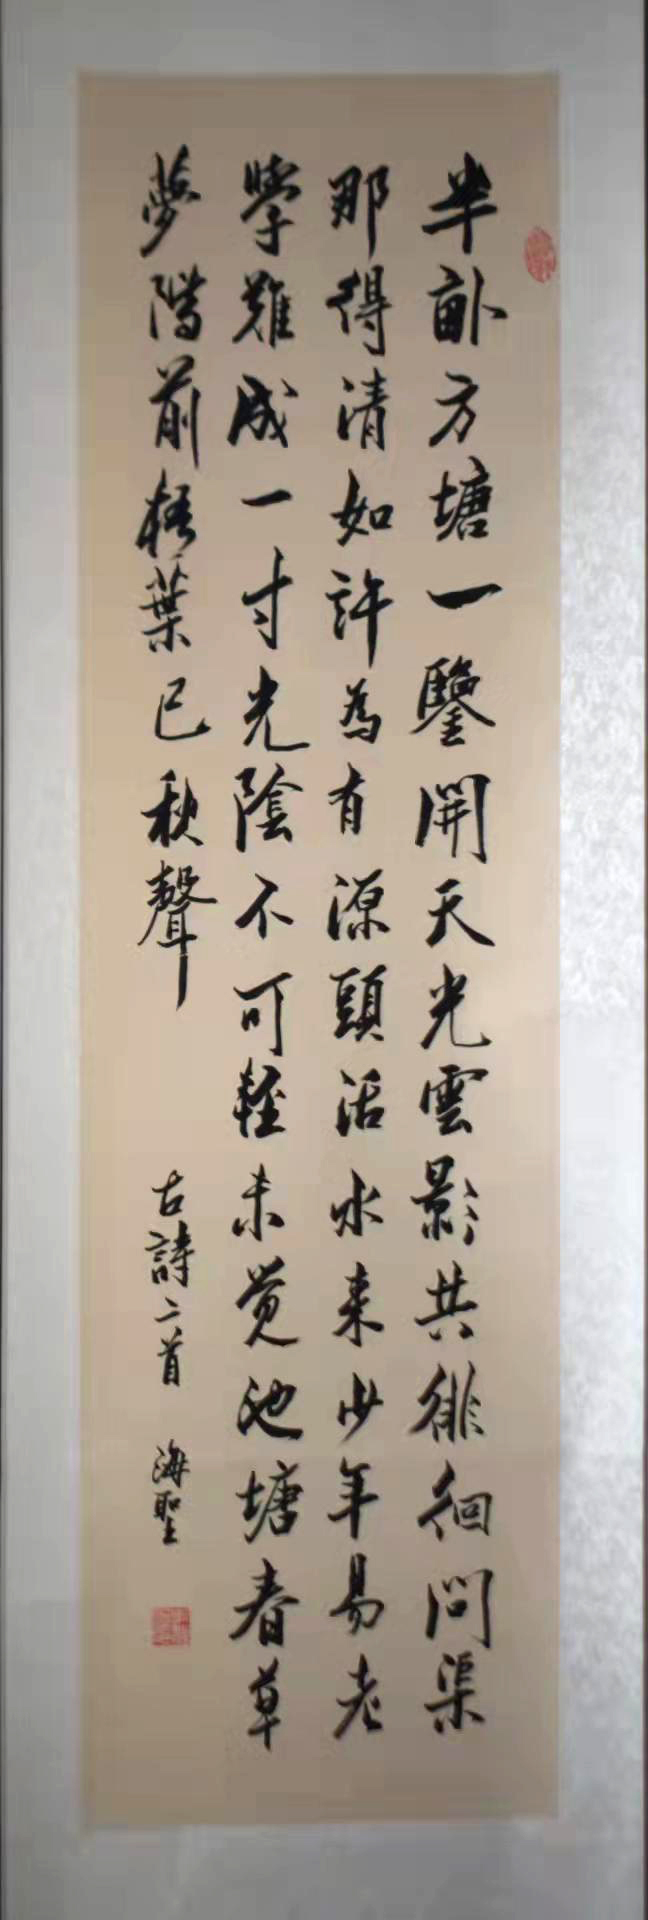 半畝方塘一鑒開天光雲影共徘徊問渠
那得清如許為有源頭活水来少年易老
學難成一寸光陰不可輕未覚池塘春草
夢階前梧葉已秋聲
古詩二首
海聖